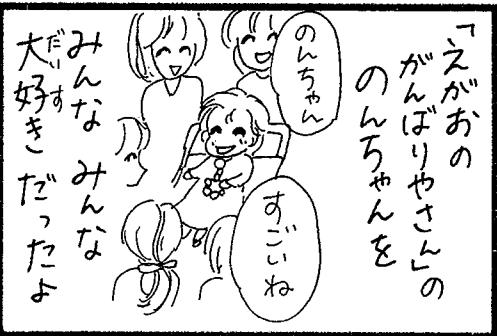 「えがおの
がんばりやさん」の
のんちゃんを
のんちゃん
すごいね
みんな みんな
大好き だったよ
だいす